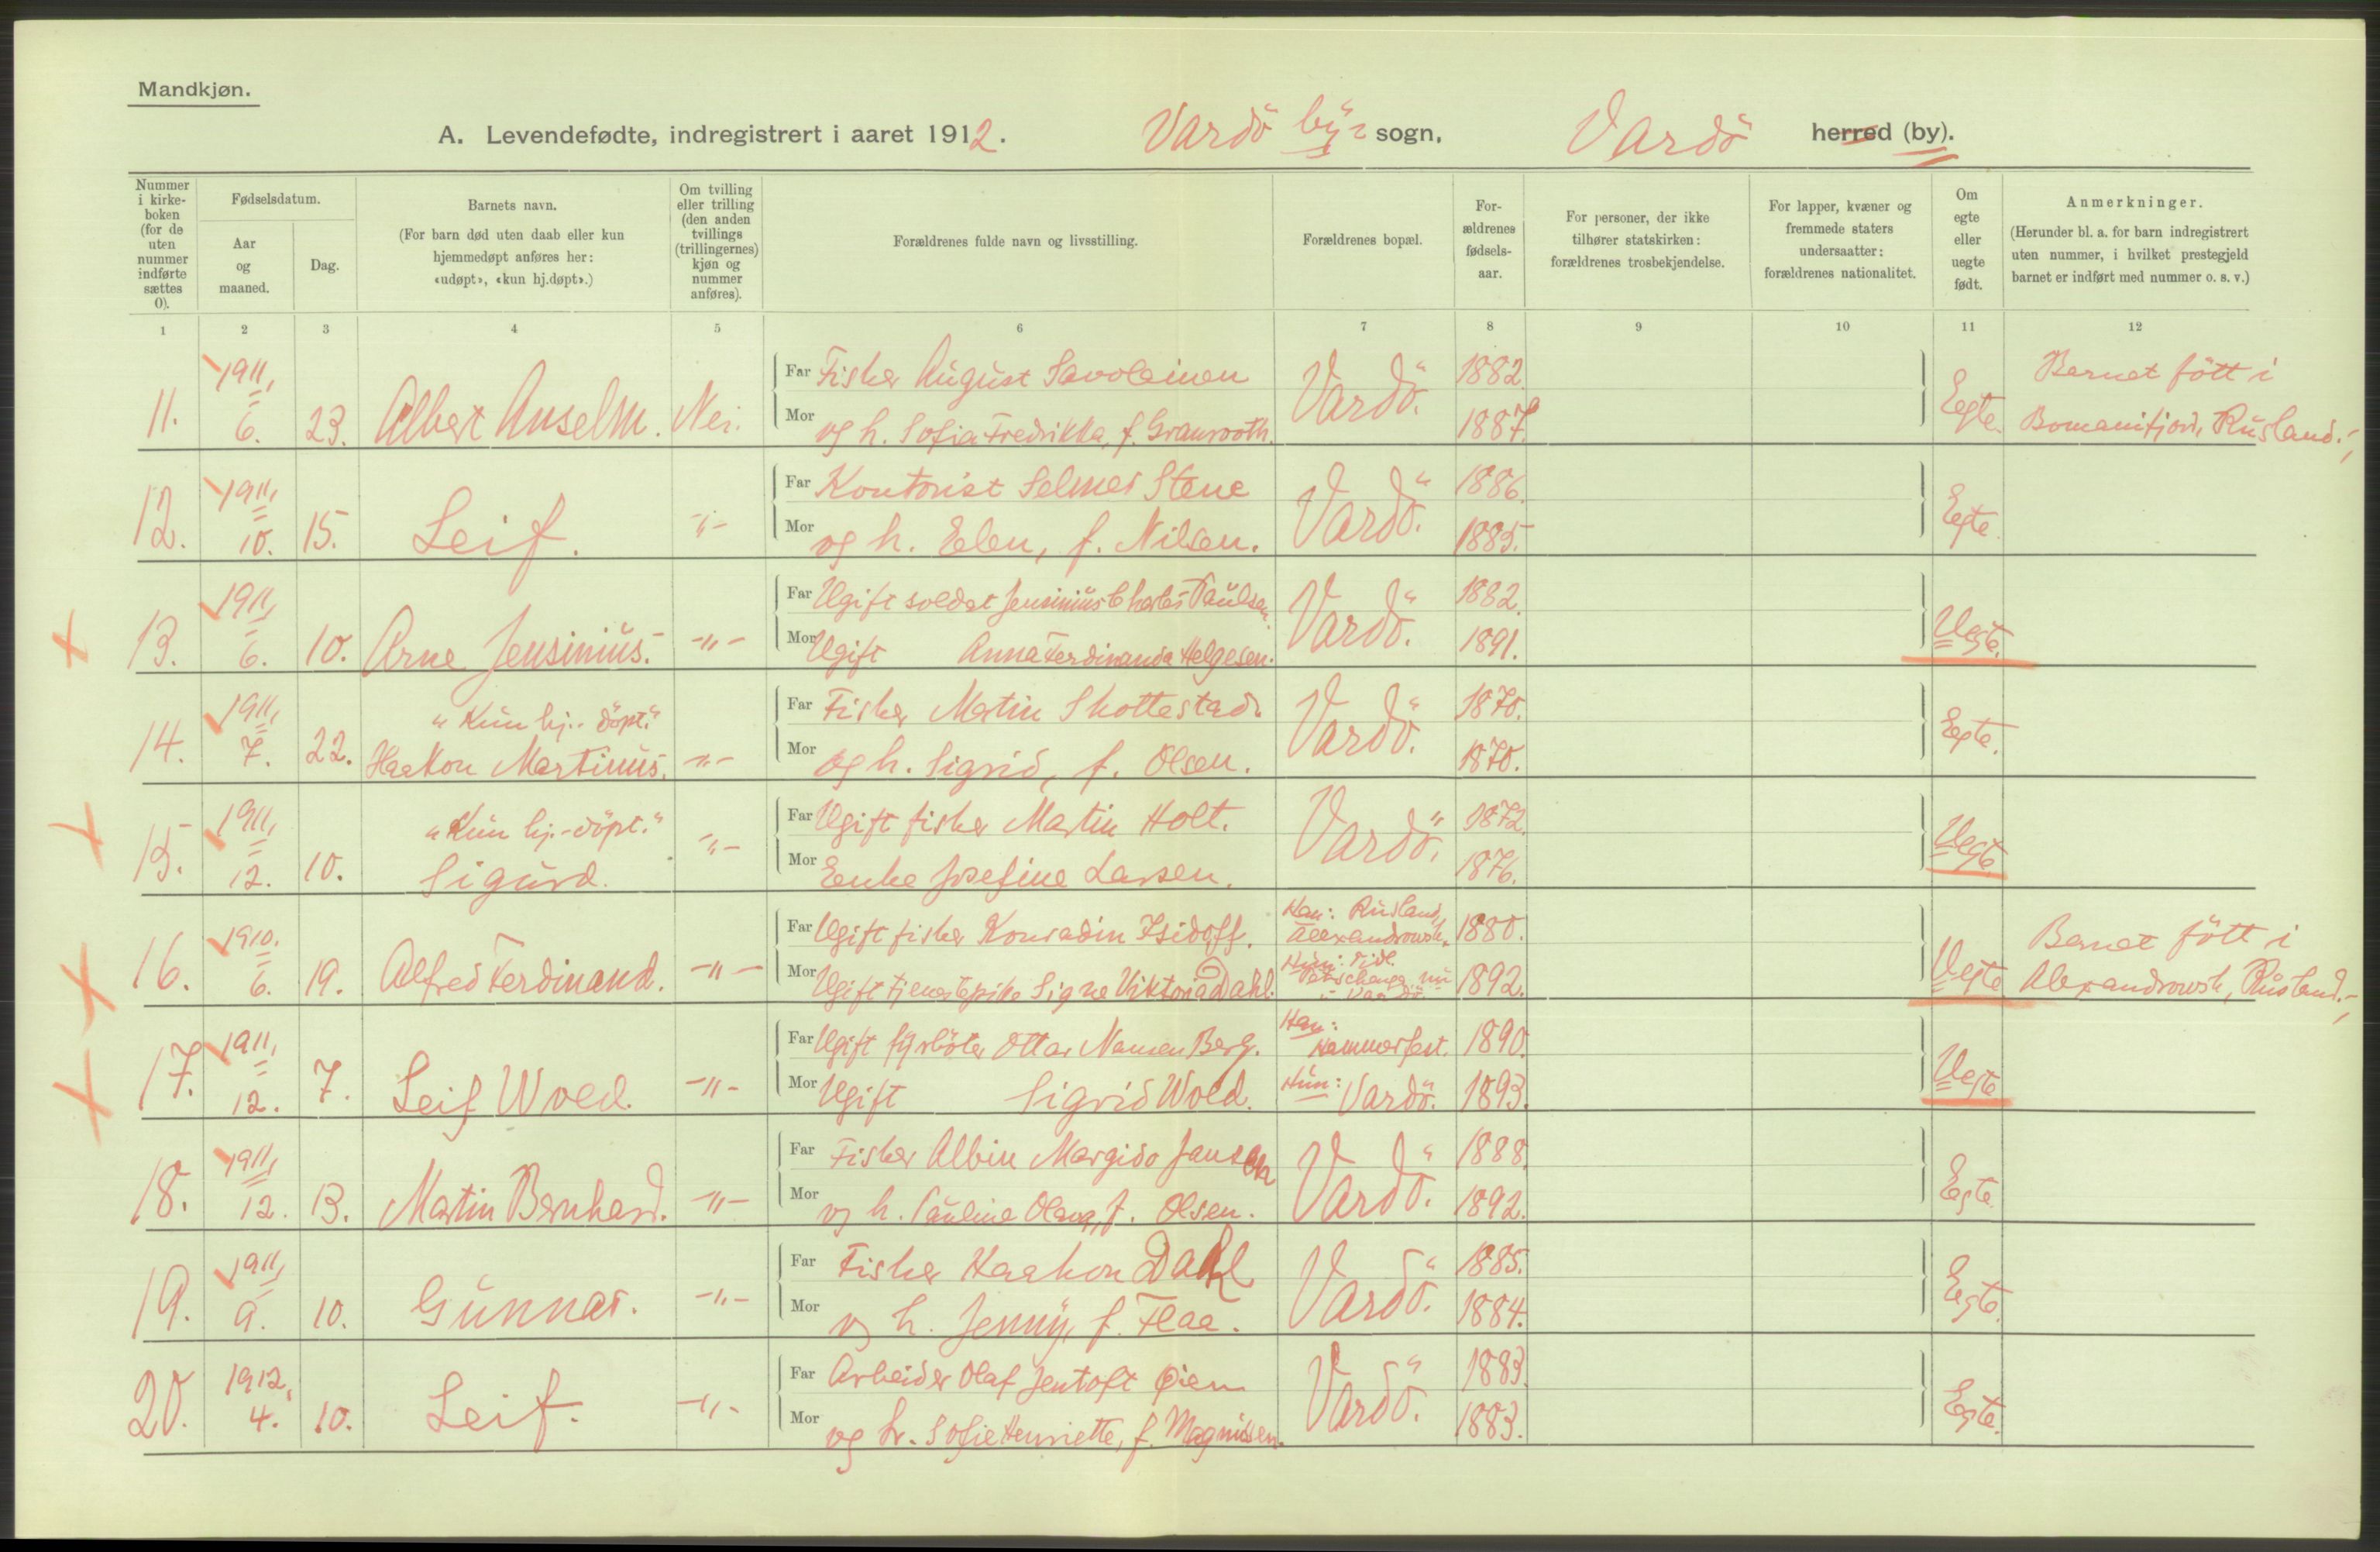 Mandkjøn.
A. Levendefødte, indregistrert i aaret 1912. Vardö by= sogn, Vardö herred (by).
Nummer i kirke- boken (for de uten nummer indførte sættes 0).
Fødselsdatum.
Aar og maaned.
Dag.
Barnets navn.
(For barn død uten daab eller kun hjemmedøpt anføres her: «udøpt», «kun hj.døpt».)
Om tvilling eller trilling (den anden tvillings (trillingernes) kjøn og nummer anføres).
Forældrenes fulde navn og livsstilling.
Forældrenes bopæl.
For- ældrenes fødsels- aar.
For personer, der ikke tilhører statskirken: forældrenes trosbekjendelse.
For lapper, kvæner og fremmede staters undersaatter: forældrenes nationalitet.
Om egte eller uegte født.
Anmerkninger.
(Herunder bl. a. for barn indregistrert uten nummer, i hvilket prestegjeld barnet er indført med nummer o. s. v.)
1 2 3 4 5 6 7 8 9 10 11 12
11. 1911, 6. 23. Albert Anselm. Nei. Far Fisker August Savolainen Vardö. 1882. Egte. Barnet fött i
Mor og h. Sofia Fredrikka, f. Granrooth. 1887. Bomanifjord, Rusland.-,
12. 1911, 10. 15. Leif. -"- Far Kontorist Selmer Stene Vardö. 1886. Egte.
Mor og h. Elen, f. Nilsen. 1885.
13. 1911, 6. 10. Arne Jensinius.- -"- Far Ugift soldat Jensinius Charles Paulsen. Vardö. 1882. Uegte.
Mor Ugift Anna Ferdinanda Helgesen. 1891.
14. 1911, 7. 22. "Kun hj.-döpt." Far Fisker Martin Skottestad. Vardö. 1870. Egte.
Haakon Martinus. -"- Mor og h. Sigrid, f. Olsen. 1870.
15. 1911, 12. 10. "Kun hj.-döpt." -"- Far Ugift fisker Martin Holt. Vardö. 1872. Uegte.
Sigurd. Mor Enke Josefine Larsen. 1876.
16. 1910. 6. 19. Alfred Ferdinand. -"- Far Ugift fisker Konradin Isidoff. Han: Rusland, Alexandrowsk. 1880. Uegte Barnet fött i
Mor Ugift tjenestepike Signe Viktoria Dahl. Hun: Tidl. Petschenga, nu i Vardö. 1892. Alexandrowsk, Rusland.-,
17. 1911, 12. 7. Leif Wold. -"- Far Ugift fyrböter Ottar Nansen Berg. Han: Hammerfest. 1890. Uegte
Mor Ugift Sigrid Wold. Hun: Vardö. 1893.
18. 1911, 12. 13. Martin Bernhard. -"- Far Fisker Albin Margido Jansen Vardö. 1888. Egte.
Mor og h. Pauline Olava, f. Olsen. 1892.
19. 1911, 9. 10. Gunnar. -"- Far Fisker Haakon Dahl Vardö. 1885. Egte.
Mor og h. Jenny, f. Flaa. 1884.
20. 1912, 4. 10. Leif. -"- Far Arbeider Olaf Jentoft Øien Vardö. 1883. Egte.
Mor og h. Sofie Henriette, f. Magnussen. 1883.